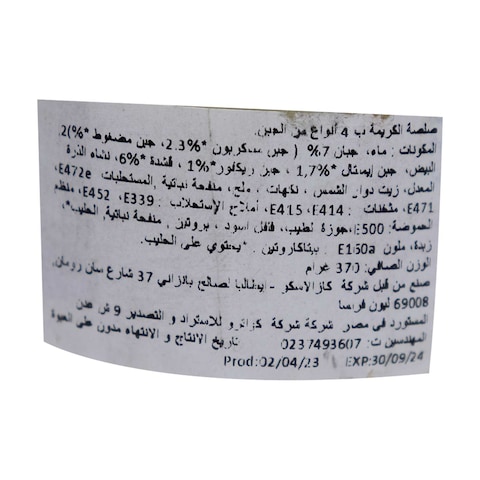 صلصة الكريمة ب 4 أنواع من الجبن
المكونات : ماء، جبان 7% ( جبن مسكربون *2.3%، جبن مضغوط *%)2،
البيض، جبن إيمنتال *1,7% ، جبن ريكفور*1% ، قشدة *6%، نشاء الذرة
المعدل، زيت دوار الشمس ، نكهات ، ملح، منفحة نباتية ,المستحلبات E472e،
E471، مثخنات : E414، E415، أملاح الإستحلاب : E339، E452 ، منظم
الحموضة: E500،جوزة الطيب، فلفل أسود ، بروتين , منفحة نباتية, الحليب*،
زبدة، ملون E160a : بيتاكاروتين . *يحتوي على الحليب.
الوزن الصافي: 370 غرام
صنع من قبل شركة كازالاسكو - إيطاليا لصالح بانزاني 37 شارع سان رومان,
69008 ليون فرنسا
المستورد فى مصر شركة شركة للاستراد و التصدير 9 ش عدن
المهندسين ت: 0237493607 تاريخ الانتاج و الانتهاء مدون على العبوة
Prod:02/04/23 EXP:30/09/24